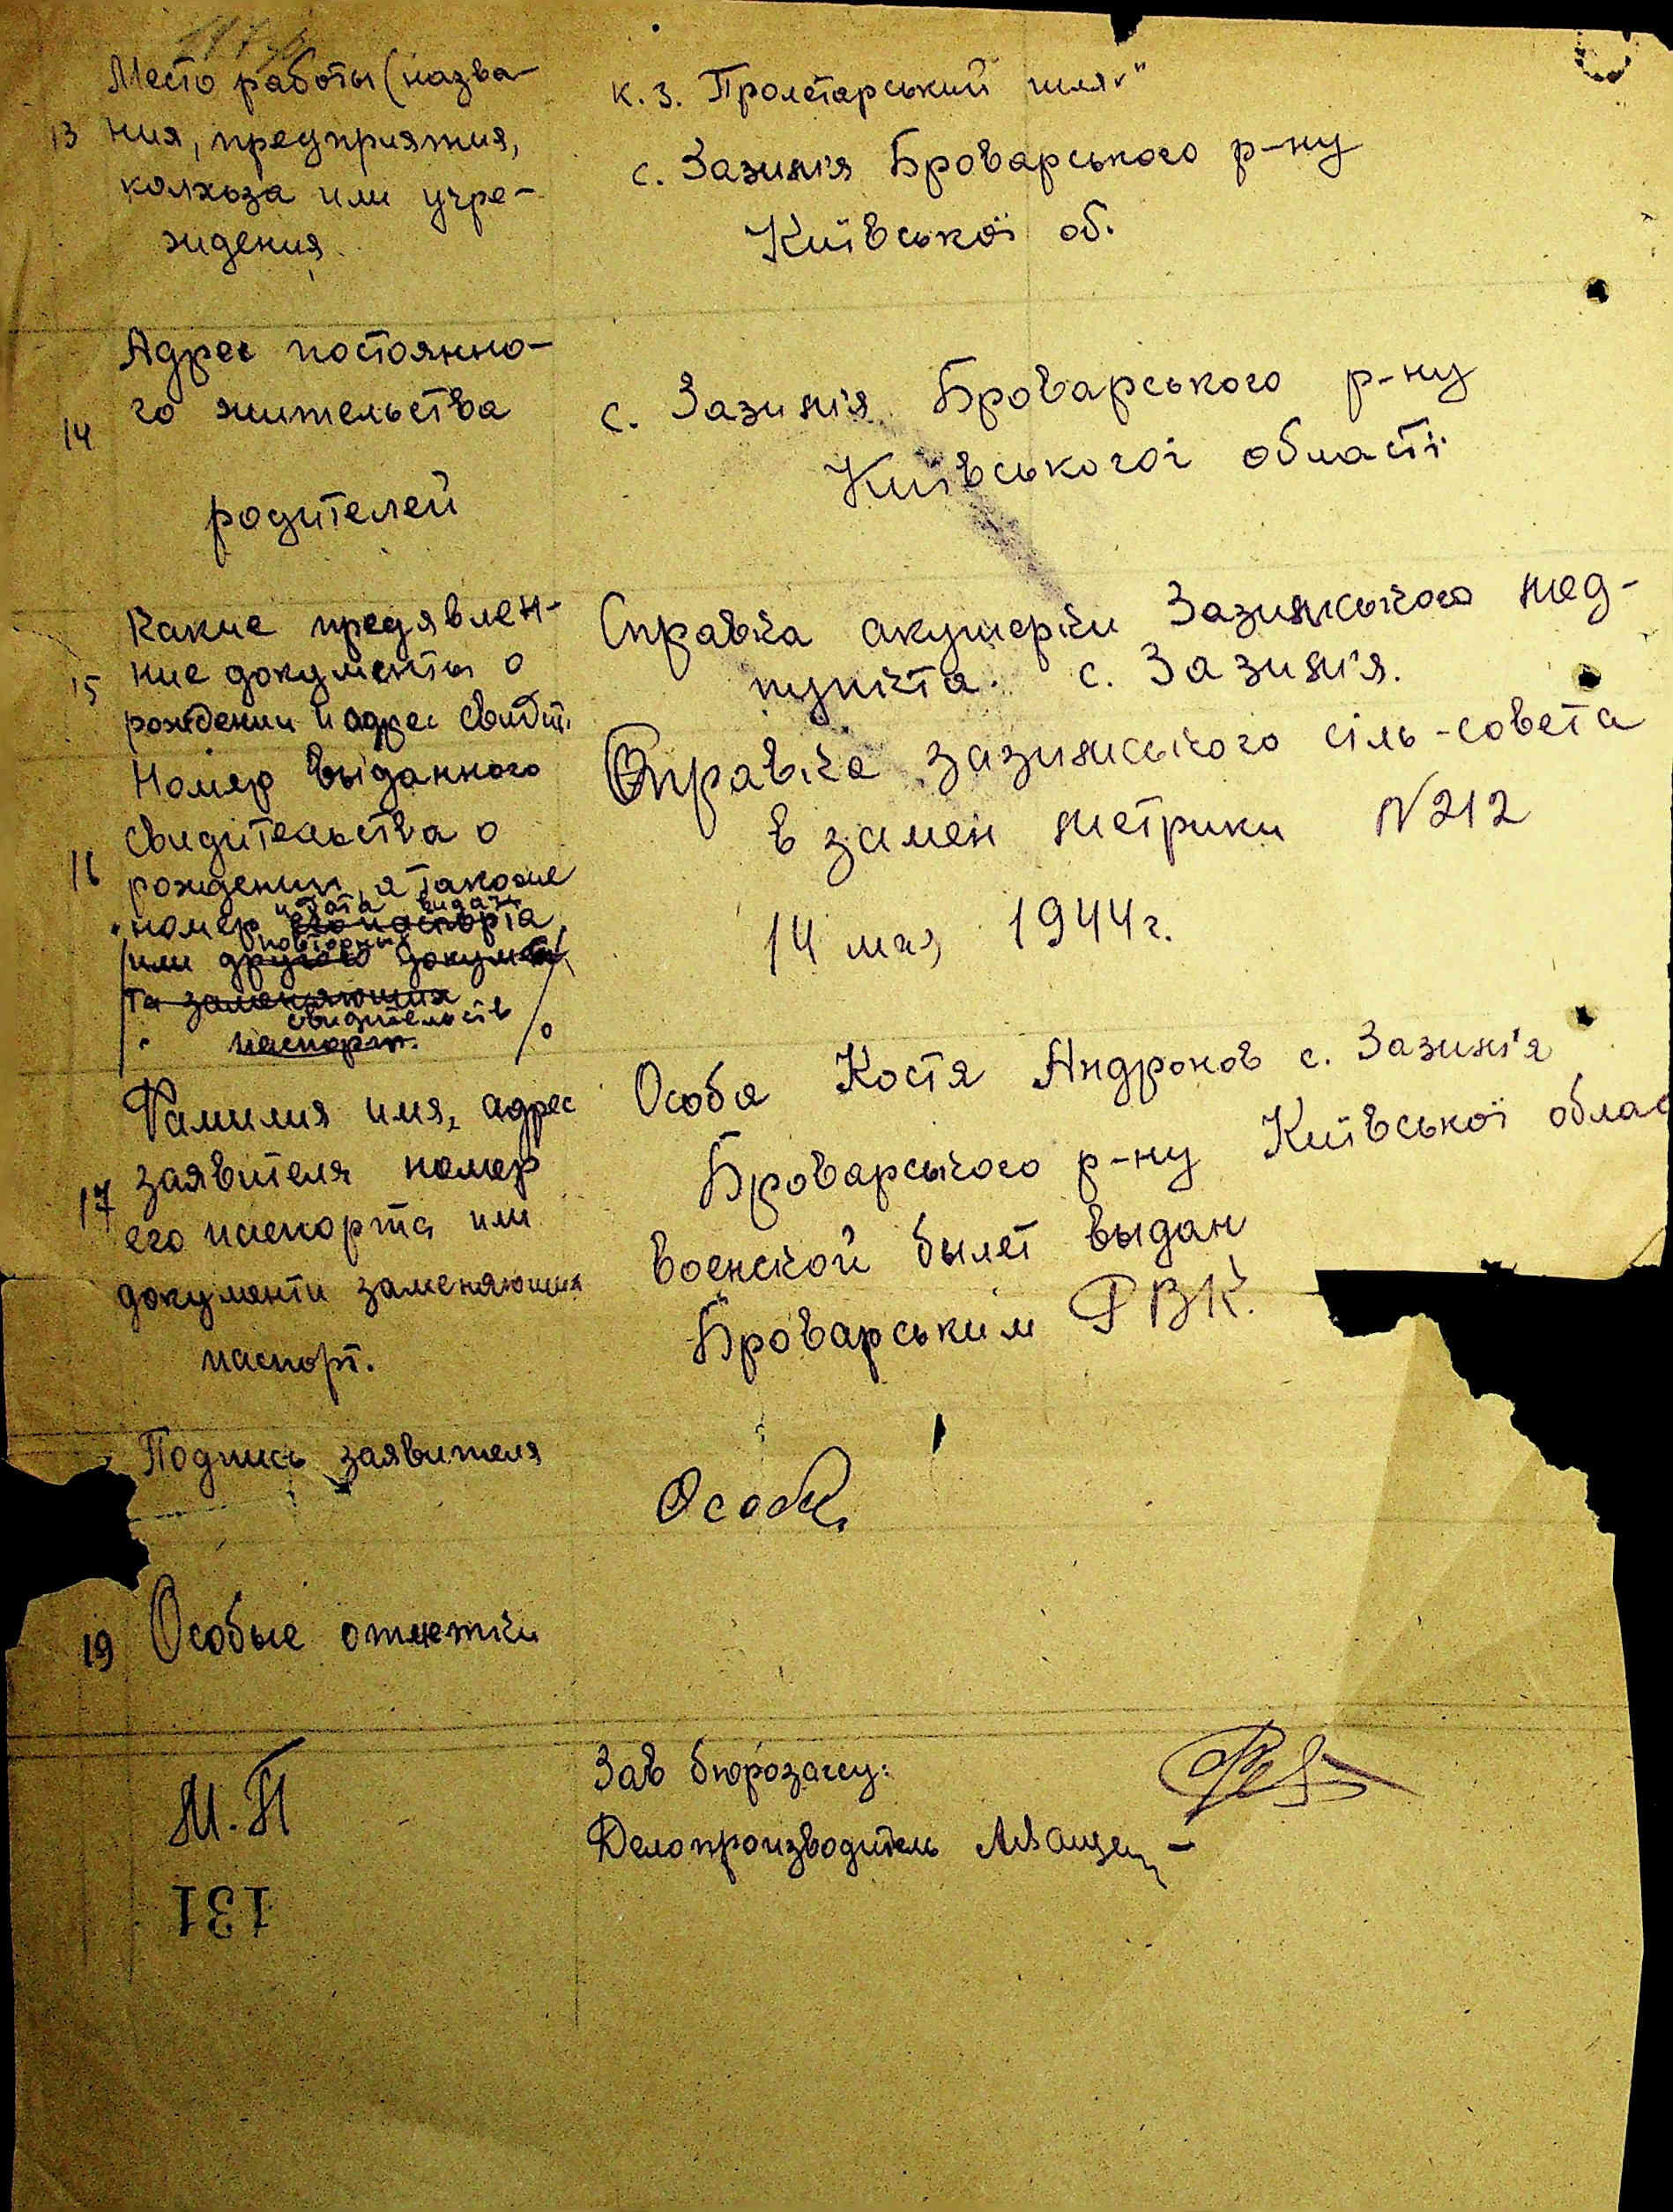 Место работы (назва-
13 ния, предприятия,
колхоза или учре-
ждения
к. з. Пролетарський шлях"
с. Зазим'я Броварського р-ну
Київської об.
Адрес постоянно-
14 го жительства
родителей
с. Зазим'я Броварського р-ну
Київськогої області
Какие предявлен-
15 ние документы о
рождении и адрес свидит.
Справка акушерки Зазимського мед-
пункта. с. Зазим'я.
Номер выданного
свидительства о
16 рождении, а также
и дата видачи
номер его паспорта
повторных
или другого докумен
та заменяющия
свидительств
паспорт.
Справка Зазимського сіль-совета
в замен метрики N212
14 мая 1944г.
Фамилия имя, адрес
заявителя номер
17 его паспорта или
документи заменяющия
паспорт.
Особа Костя Андронов с. Зазим'я
Броварського р-ну Київської облас
военской былет выдан
Броварським РВК.
Подпись заявителя
Особа
19 Особые отметки
М.П
Зав бюрозагсу:
Делопроизводитель
131